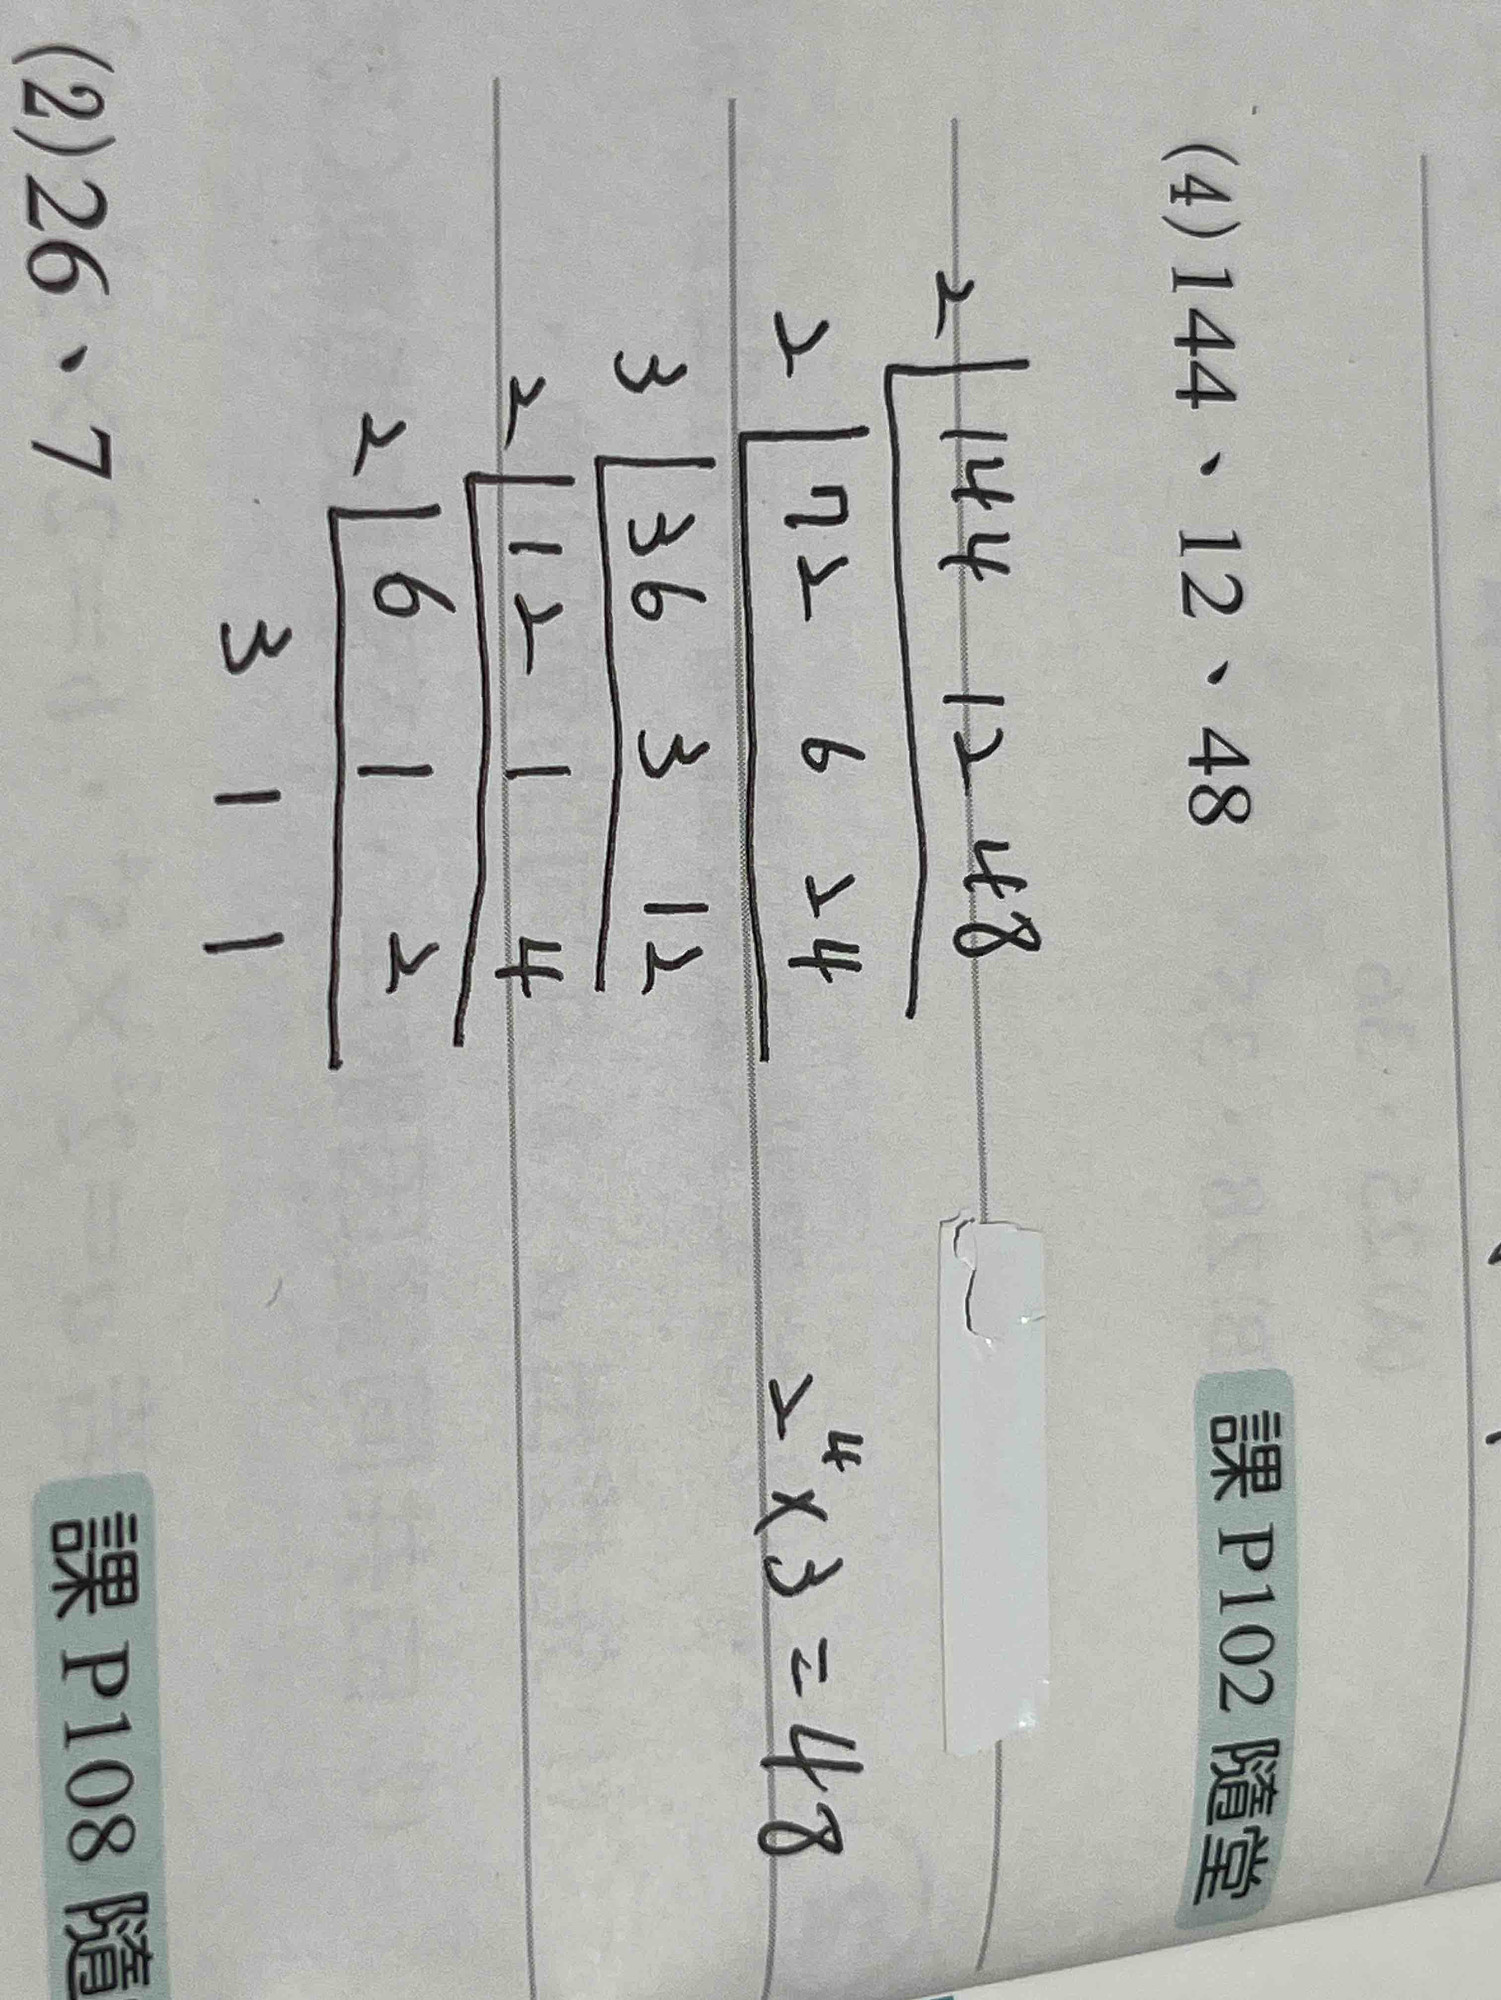 (4)144、12、48 課 P102 隨堂
2 144 12 48
2 72 6 24 2⁴×3=48
3 36 3 12
2 12 1 4
2 6 1 2
3 1 1
(2)26、7 課 P108 隨